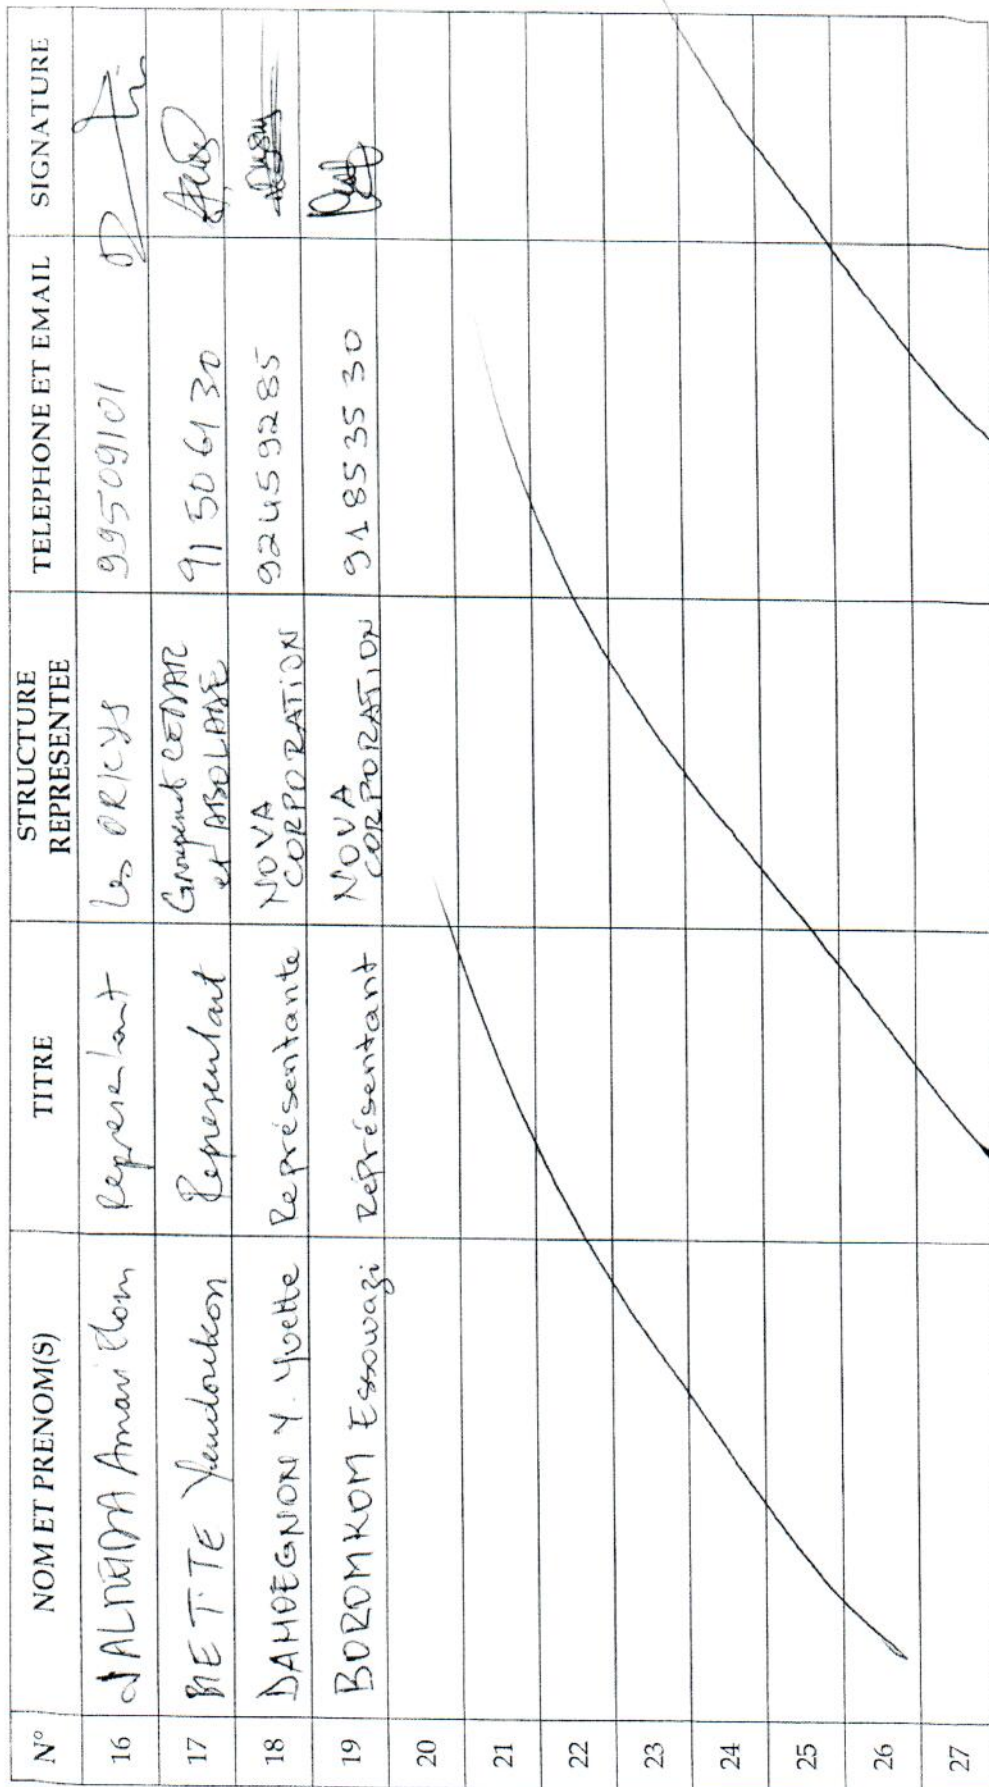 N° NOM ET PRENOM(S) TITRE STRUCTURE REPRESENTEE TELEPHONE ET EMAIL SIGNATURE
16 Representant Les ORKYS 99509101
17 Representant et 91 50 61 30
18 DAHOEGNON Y. Yvette Représentante NOVA CORPORATION 92459285
19 BOROMKOM Essowazi Réprésentant NOVA CORPORATION 91853530
20
21
22
23
24
25
26
27